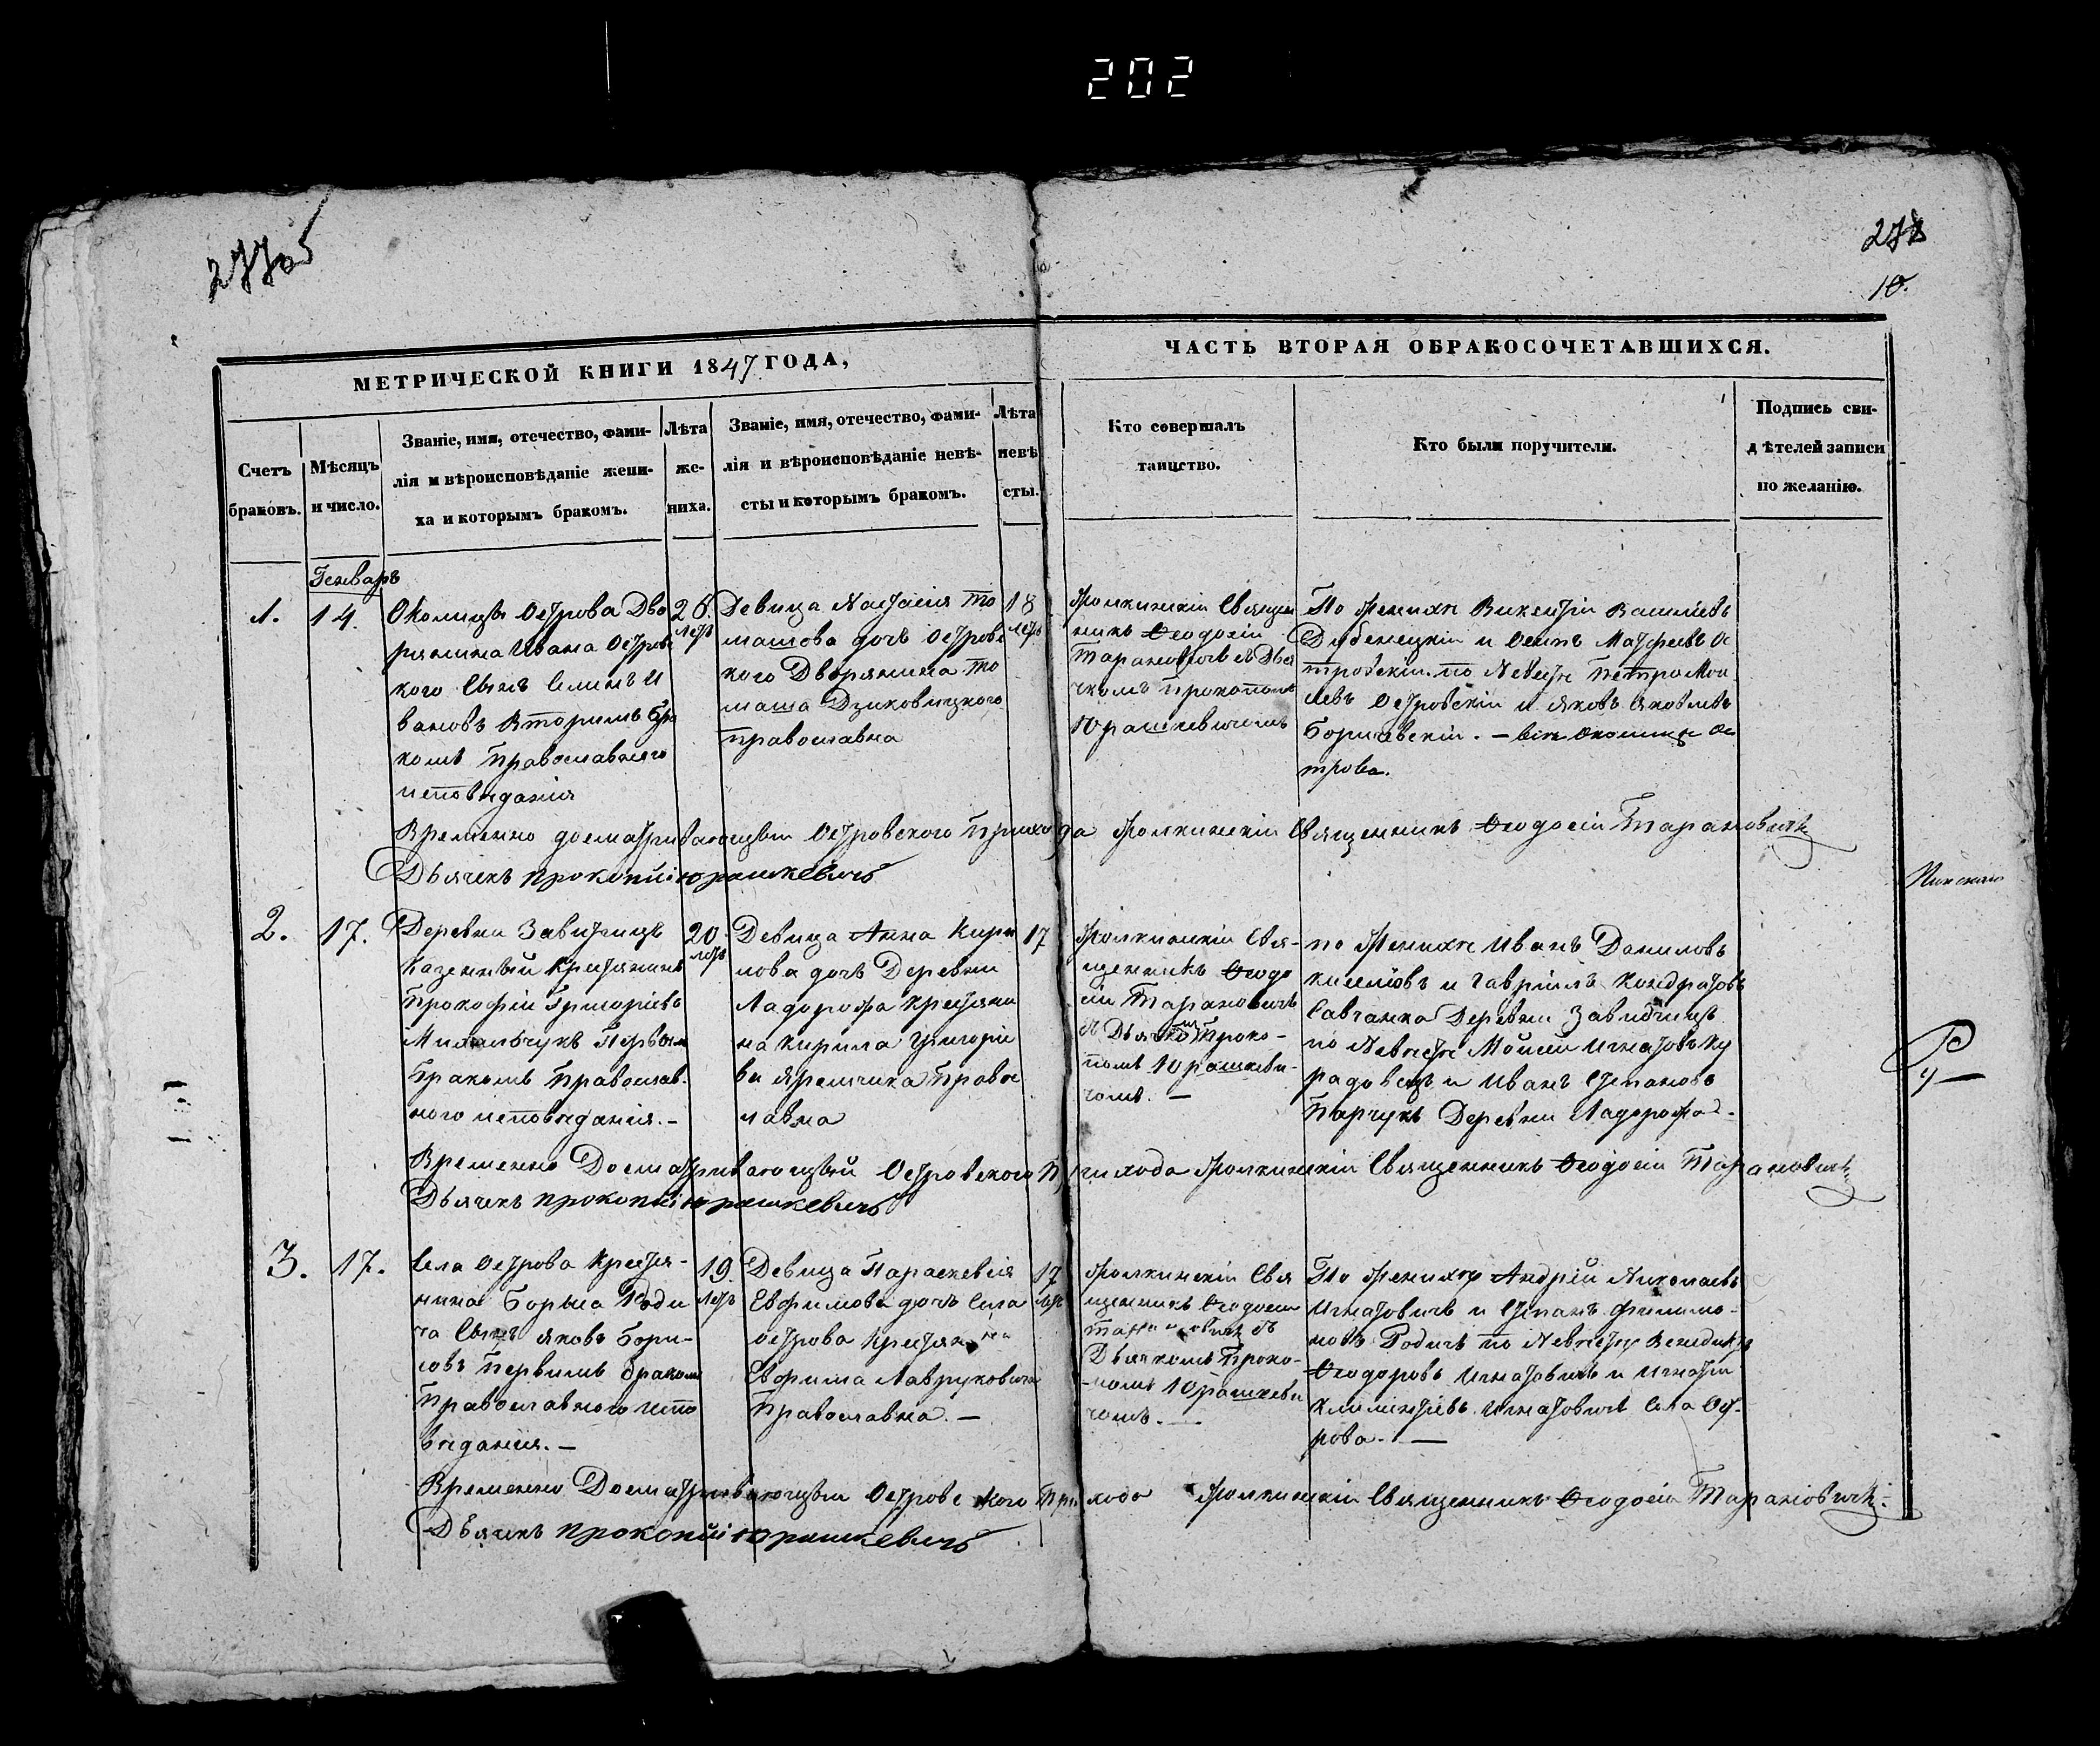 202
277об
278
10.
МЕТРИЧЕСКОЙ КНИГИ 1847 ГОДА,
ЧАСТЬ ВТОРАЯ ОБРАКОСОЧЕТАВШИХСЯ.
Счетъ
браковъ.
Мѣсяцъ
и число.
Званіе, имя, отечество, фами-
лія и вѣроисповѣданіе жени-
ха и которымъ бракомъ.
Лѣта
же-
ниха.
Званіе, имя, отечество, фами-
лія и вѣроисповѣданіе невѣ-
сты и которымъ бракомъ.
Лѣта
невѣ
сты.
Кто совершалъ
таинство.
Кто были поручители.
Подпись сви-
дѣтелей записи
по желанію.
Генваръ
1.
14.
Околицы Острова Дво
рянина Ивана Островс
кого Сынъ Семенъ И
вановъ Вторимъ Бра
комъ Православнаго
исповѣданія
26.
летъ
Девица Настасія То
машова дочъ Островс
кого Дворянина То
маша Дзиковицкого
православна
18
летъ
Священ
никъ Ѳеодосій
Тарановичъ съ Дья
чкомъ Прокопомъ
Юрашкевичемъ
По Женихѣ Викентій Василіевъ
Дубенецкій и Осипъ Матфеевъ Ос
тровскій. по Невестѣ Петро Мои
сеевъ Островскій и Яковъ Яковлевъ
Боришевскій. — всѣ Околицы Ос
трова.
Временно досматривающый Островского Прихода Священникъ Ѳеодосій Тарановичъ
Дьячекъ Прокопій Юрашкевичъ
Пинскаго
2.
17.
Деревни Завитчицъ
Казенный Крестянинъ
Прокофій Григоріевъ
Первымъ
Бракомъ Православ-
ного исповѣданія. —
20.
летъ
Девица Анна Кири
лова дочъ Деревни
Ладорожа Крестяни
на Кирила Григорье
ва Яремчика Правос
лавна
17
Свя-
щенникъ Ѳеодо
сій Тарановичъ
съ Дьячкомъ Проко-
помъ Юрашкеви-
чомъ. —
по Женихѣ Иванъ Даниловъ
и Гавріилъ Кондратовъ
Савчанка Деревни Завидчицъ
по Невестѣ Мойсей Игнатовъ Ку
радовецъ и Иванъ Степановъ
Парчукъ Деревни Ладорожа -
Временно Досматривающый Островского Прихода Священникъ Ѳеодосій Тарановичъ
Дьячекъ Прокопій Юрашкевичъ
3.
17.
Села Острова Крестя-
нина Бориса Роди
ча Сынъ Яковъ Бори-
совъ Первимъ браком
Православного испо
вѣданія. —
19.
летъ
Девица Параскевія
Евфимова дочъ Села
острова Крестянина
Евфима Лавруковича
Православна. —
17
летъ
Свя
щенникъ Ѳеодосій
Тарановичъ съ
Дьячкомъ Проко-
помъ Юрашкеви
чомъ. —
По Женихѣ Андрій Николаевъ
Игнатовичъ и Степанъ Филимо-
новъ Родичъ по Невестѣ Венедиктъ
Ѳеодоровъ Игнатовичъ и Игнатій
Климентіевъ Игнатовичъ Села Ост-
рова. —
Временно Досматривающый Островского Прихода Священникъ Ѳеодосій Тарановичъ.
Дьячекъ Прокопій Юрашкевичъ